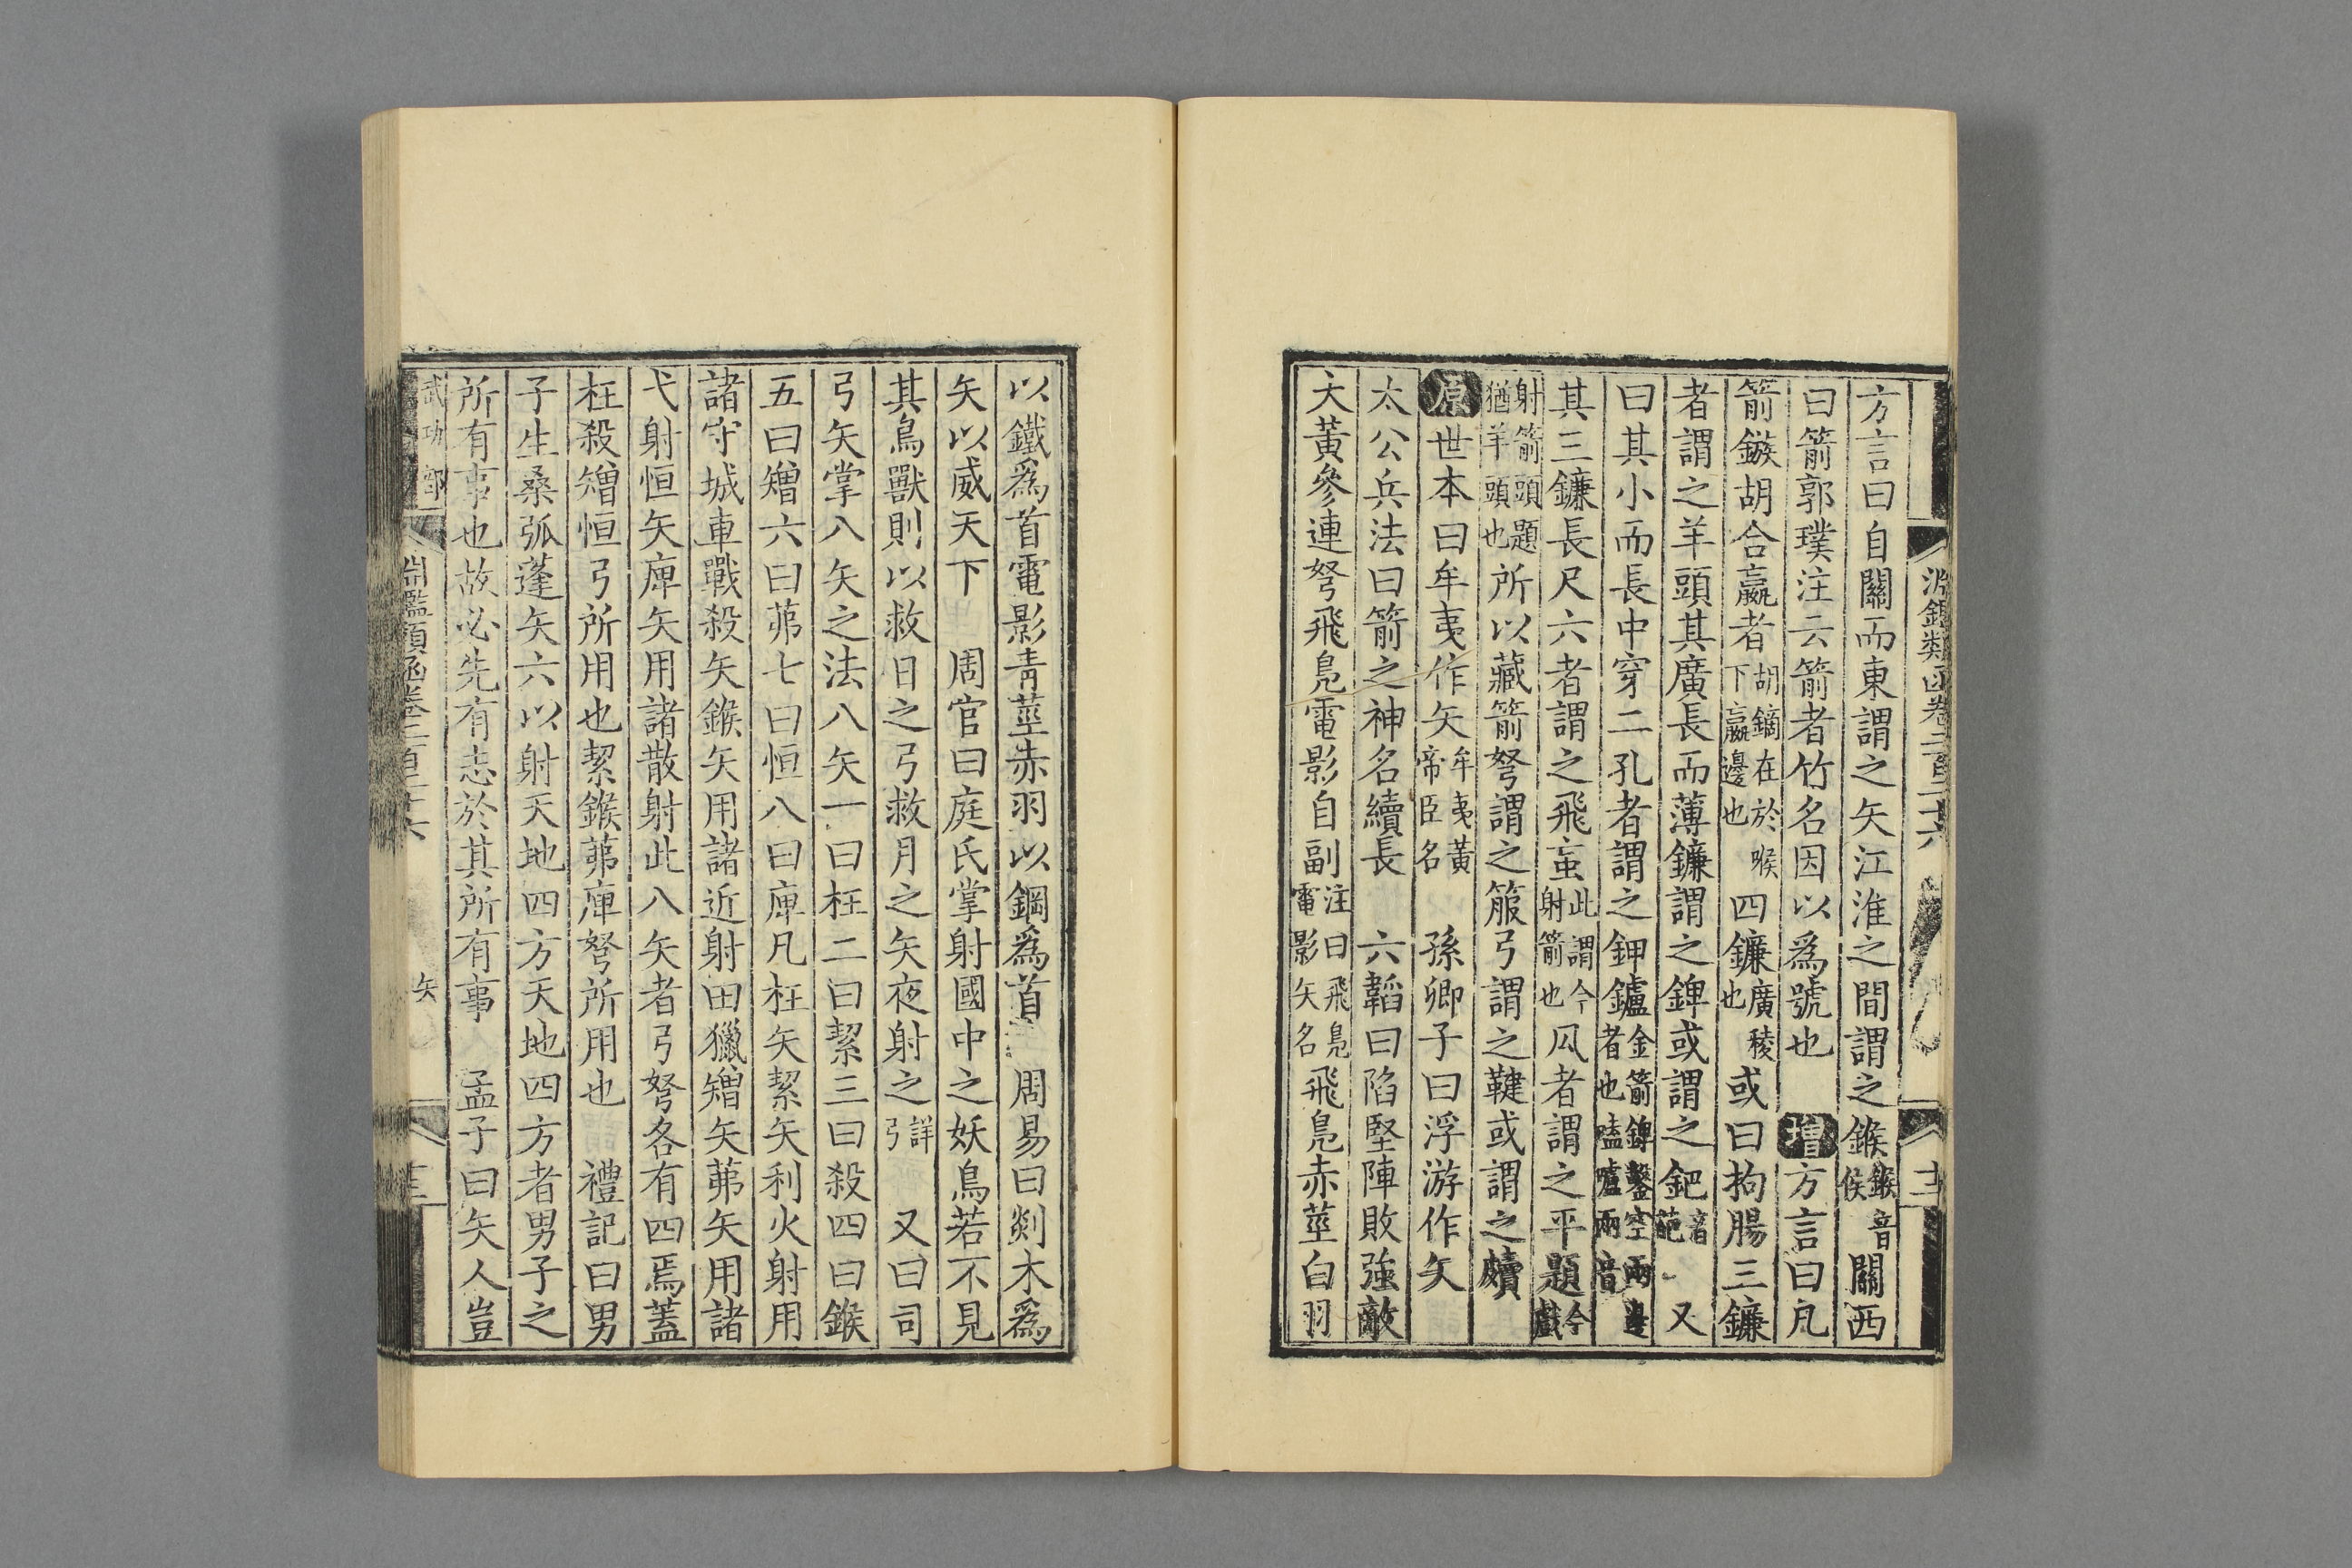 淵鑑類函卷二百二十六
方言曰自關而東謂之矢江淮之間謂之鍭鍭音侯關西
曰箭郭璞注云箭者竹名因以爲號也 增方言曰凡
箭鏃胡合嬴者胡鏑在於喉下嬴邊也四鐮廣稜也或曰拘腸三鐮
者謂之羊頭其廣長而薄鐮謂之錍或謂之鈀音葩 又
曰其小而長中穿二孔者謂之鉀鑪金箭錍鑿空兩邊者也嗑嚧兩音
其三鐮長尺六者謂之飛䖟此謂今射箭也㼋者謂之平題今戲
射箭頭題猶羊頭也所以藏箭弩謂之箙弓謂之鞬或謂之皾
原世本曰牟夷作矢牟夷黃帝臣名 孫卿子曰浮游作矢
太公兵法曰箭之神名續長 六韜曰陷堅陣敗強敵
大黃參連弩飛鳧電影自副注曰飛鳧電影矢名飛鳧赤莖白羽
以鐵爲首電影青莖赤羽以鋼爲首 周易曰剡木爲
矢以威天下 周官曰庭氏掌射國中之妖鳥若不見
其鳥獸則以救日之弓救月之矢夜射之詳弓 又曰司
弓矢掌八矢之法八矢一曰枉二曰絜三曰殺四曰鍭
五曰矰六曰茀七曰恒八曰庳凡枉矢絜矢利火射用
諸守城車戰殺矢鍭矢用諸近射田獵矰矢茀矢用諸
弋射恒矢庳矢用諸散射此八矢者弓弩各有四焉蓋
枉殺矰恒弓所用也絜鍭茀庳弩所用也 禮記曰男
子生桑弧蓬矢六以射天地四方天地四方者男子之
所有事也故必先有志於其所有事 孟子曰矢人豈
武功部 淵鑑類函卷二百二十六 矢